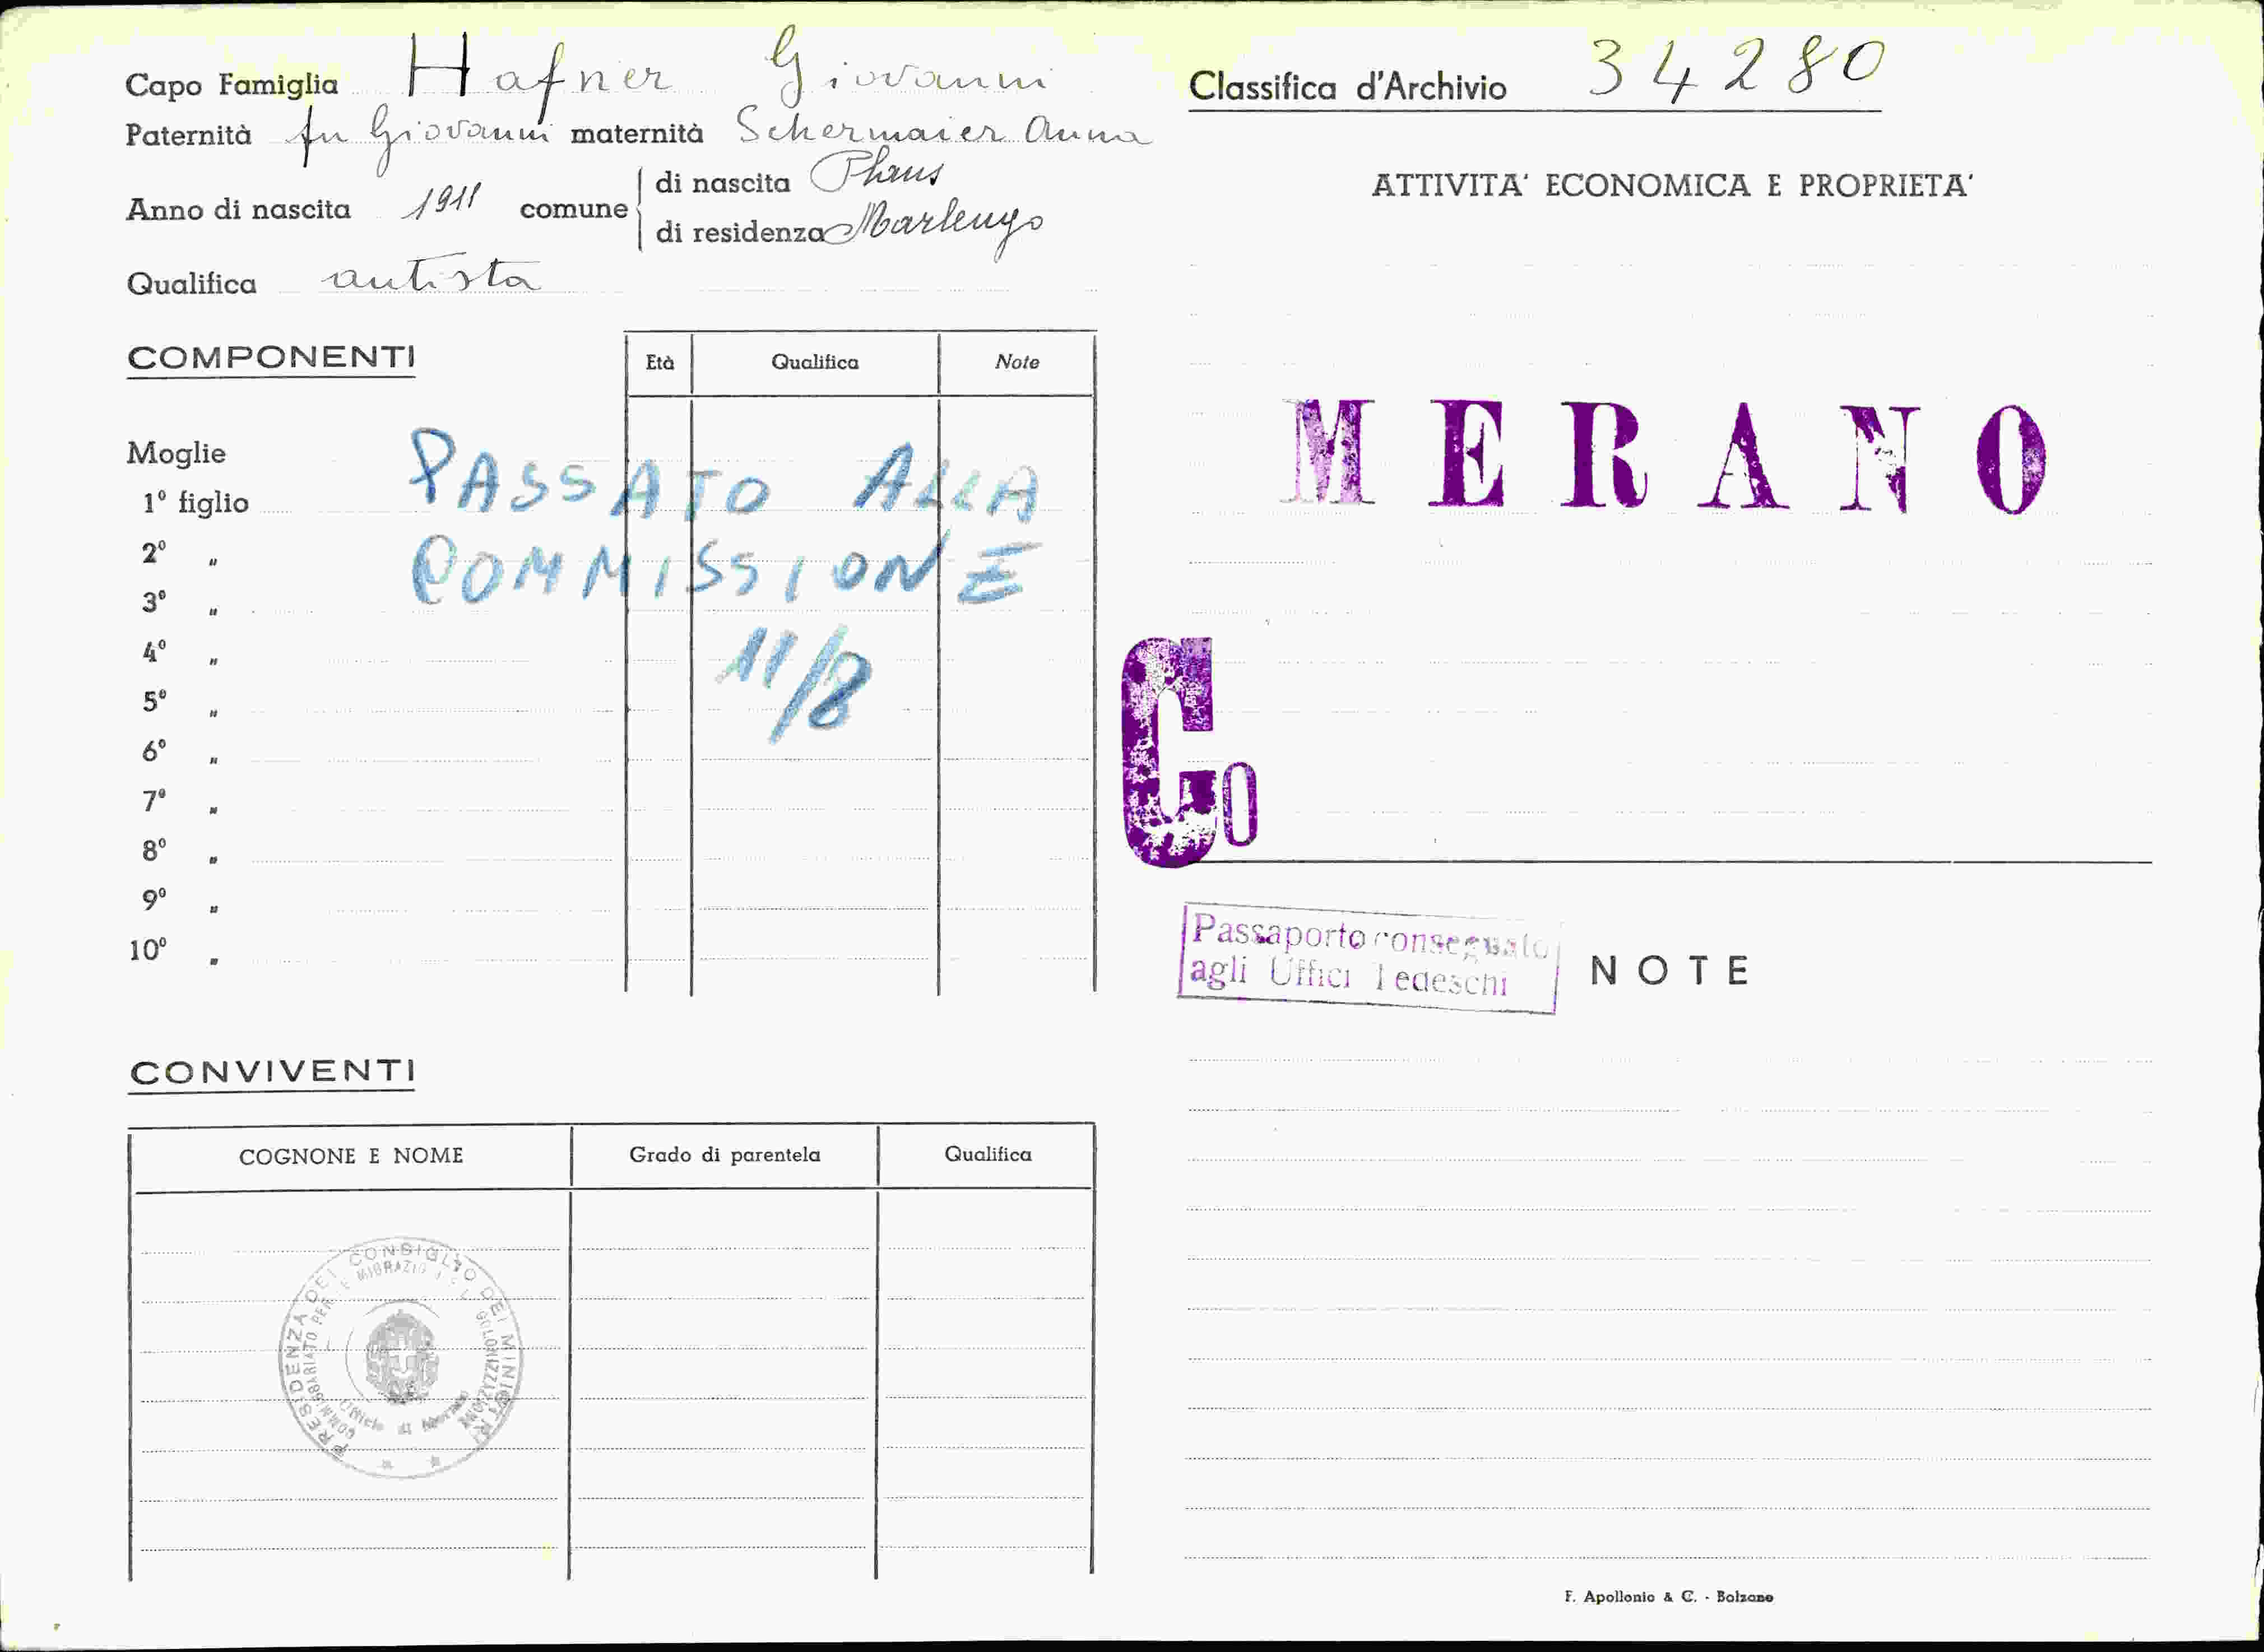 Capo Famiglia Hafner Giovanni
Paternità fu Giovanni maternità Schermaier Anna
Anno di nascita 1911 comune
di nascita Plaus
di residenza Marlengo
Qualifica autista
COMPONENTI
Età Qualifica Note
Moglie
1º figlio
2º "
3º "
4º "
5º "
6º "
7º "
8º "
9º "
10º "
PASSATO ALLA
COMMISSIONE
11/8
CONVIVENTI
COGNONE E NOME Grado di parentela Qualifica
PRESIDENZA DEL CONSIGLIO DEI MINISTRI
COMMISSARIATO PER LE MIGRAZIONI E LA COLONIZZAZIONE
Ufficio di Merano
Classifica d'Archivio 34280
ATTIVITA' ECONOMICA E PROPRIETA'
MERANO
Co
Passaporto consegnato
agli Uffici Tedeschi
NOTE
F. Apollonio & C. - Bolzano